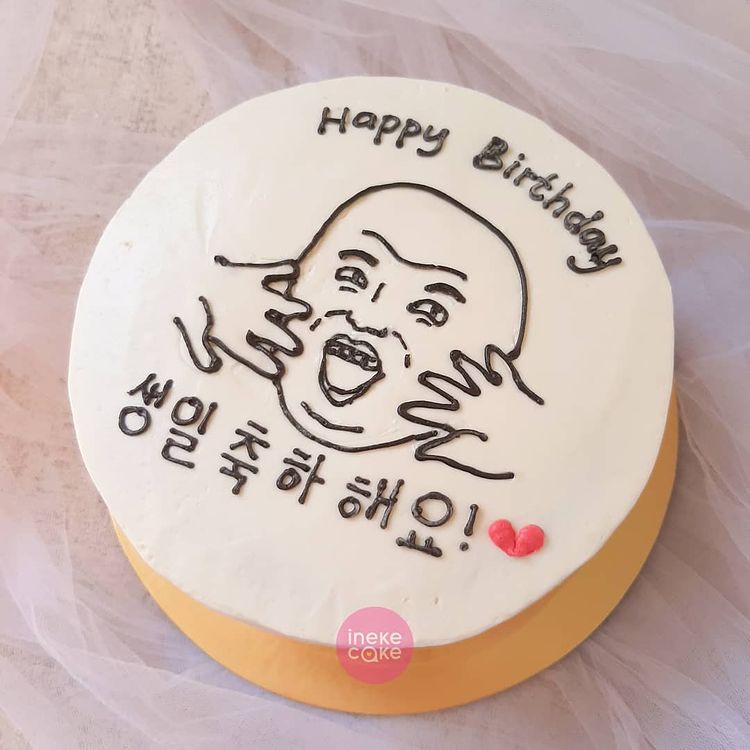 Happy Birthday
생일 축하 해요!
ineke
cake